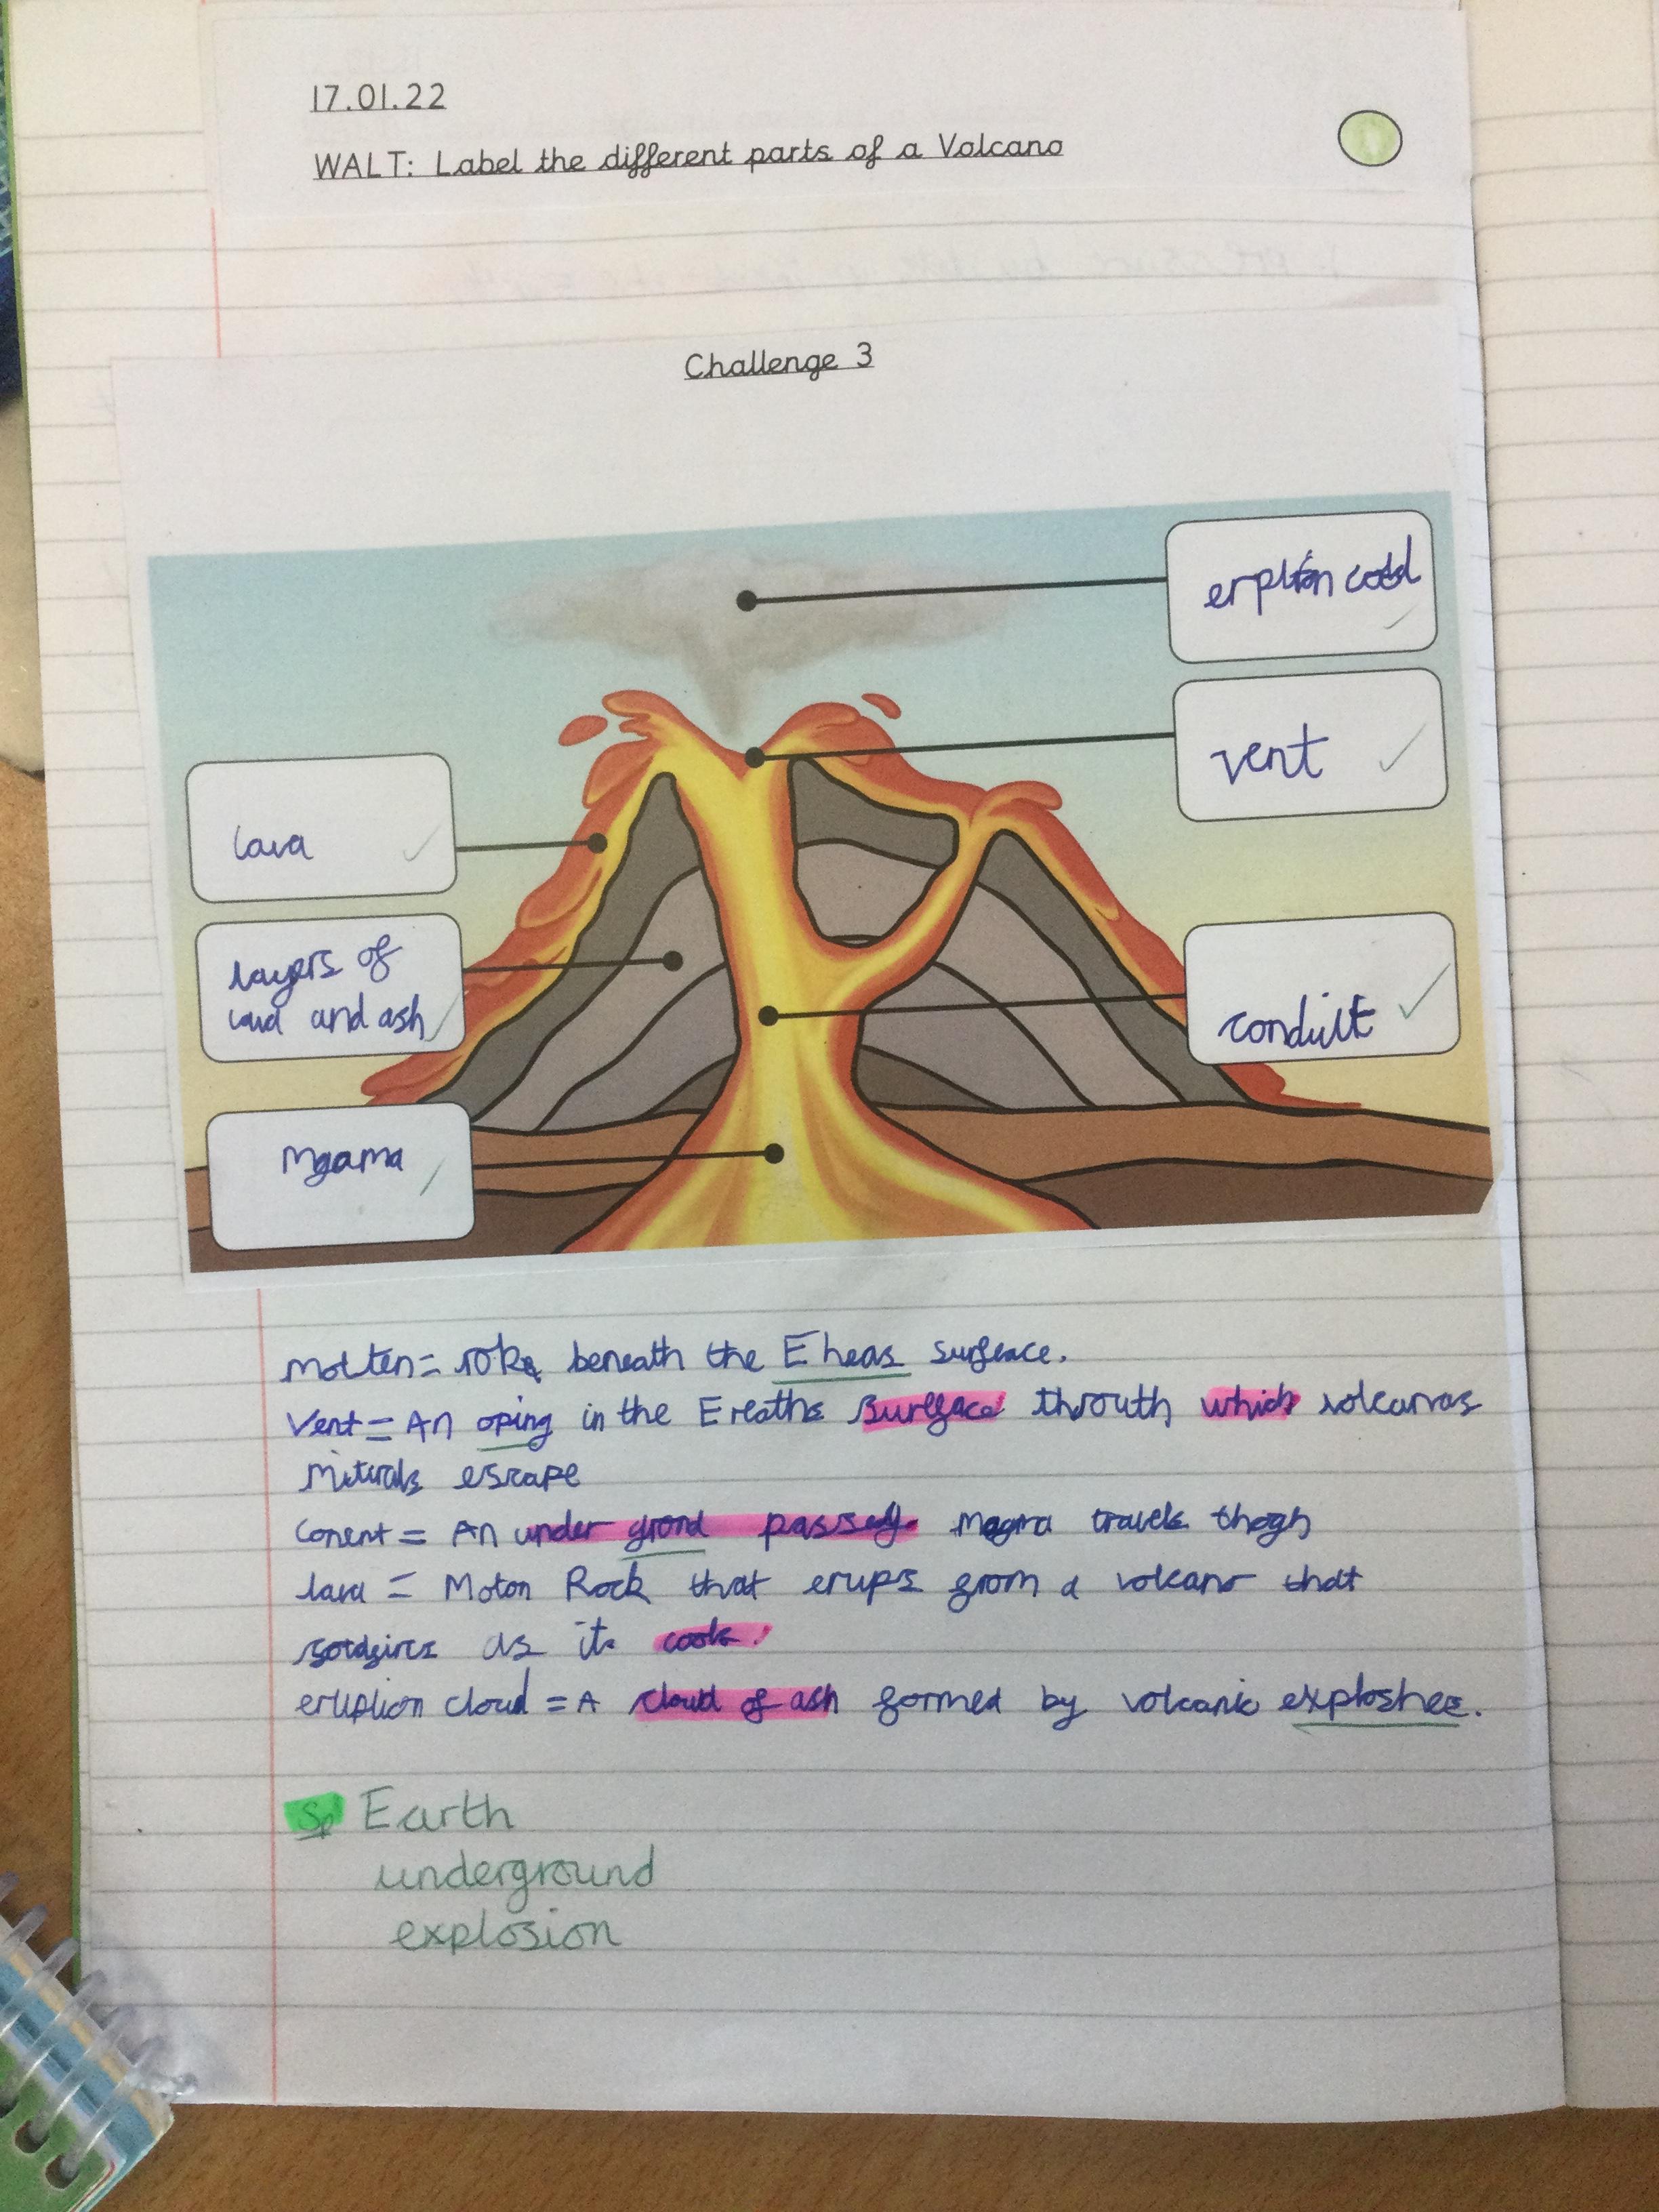 17.01.22
WALT: Label the different parts of a Volcano
Challenge 3
erpltion codd
vent
lava
layers of
lava and ash
conduit
Mgama
Molten = rok beneath the Eheas surface.
Vent = An oping in the Ereaths surfface throuth which volcanos
miturals escape
conent = An under grond passedg. Magma travels thogh
lava = Moton Rock that erups from a volcano that
as it cools.
eruption cloud = A cloud of ash formed by volcanic exploshee.
Sp Earth
underground
explosion